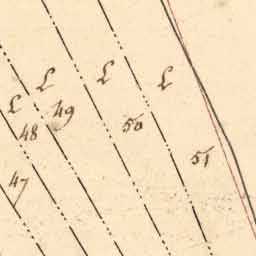 L
L
L
L
49
50
48
51
47